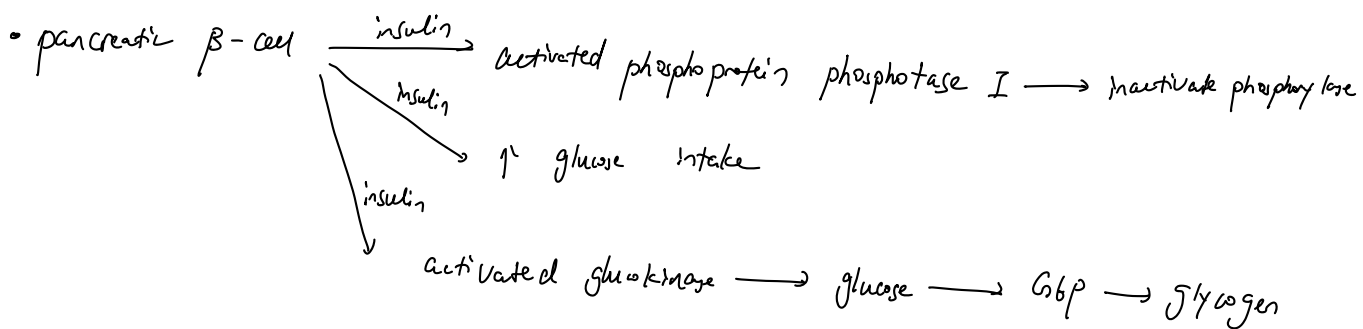 • pancreatic β-cell insulin → activated phosphoprotein phosphotase I → inactivate phosphorylase
insulin → ↑ glucose intake
insulin → activated glucokinase → glucose → G6P → glycogen